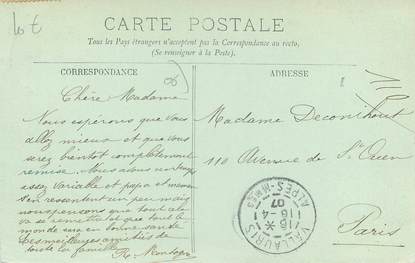 CARTE POSTALE
Tous les Pays étrangers n'acceptent pas la Correspondance au recto.
(Se renseigner à la Poste).
CORRESPONDANCE
Chère Madame
Nous espérons que vous
allez mieux et que vous
serez bientôt complètement
remise. Nous avons un temps
assez variable et papa et maman
s'en ressentent un peu mais
nous pensons que tout cela
va se remettre et que tout le
monde sera en bonne santé
Les meilleures amitiés de
toute la famille
ADRESSE
Madame Deconihout
110 Avenue de St Ouen
Paris
VALLAURIS
16 - 4
07
ALPES-MMES